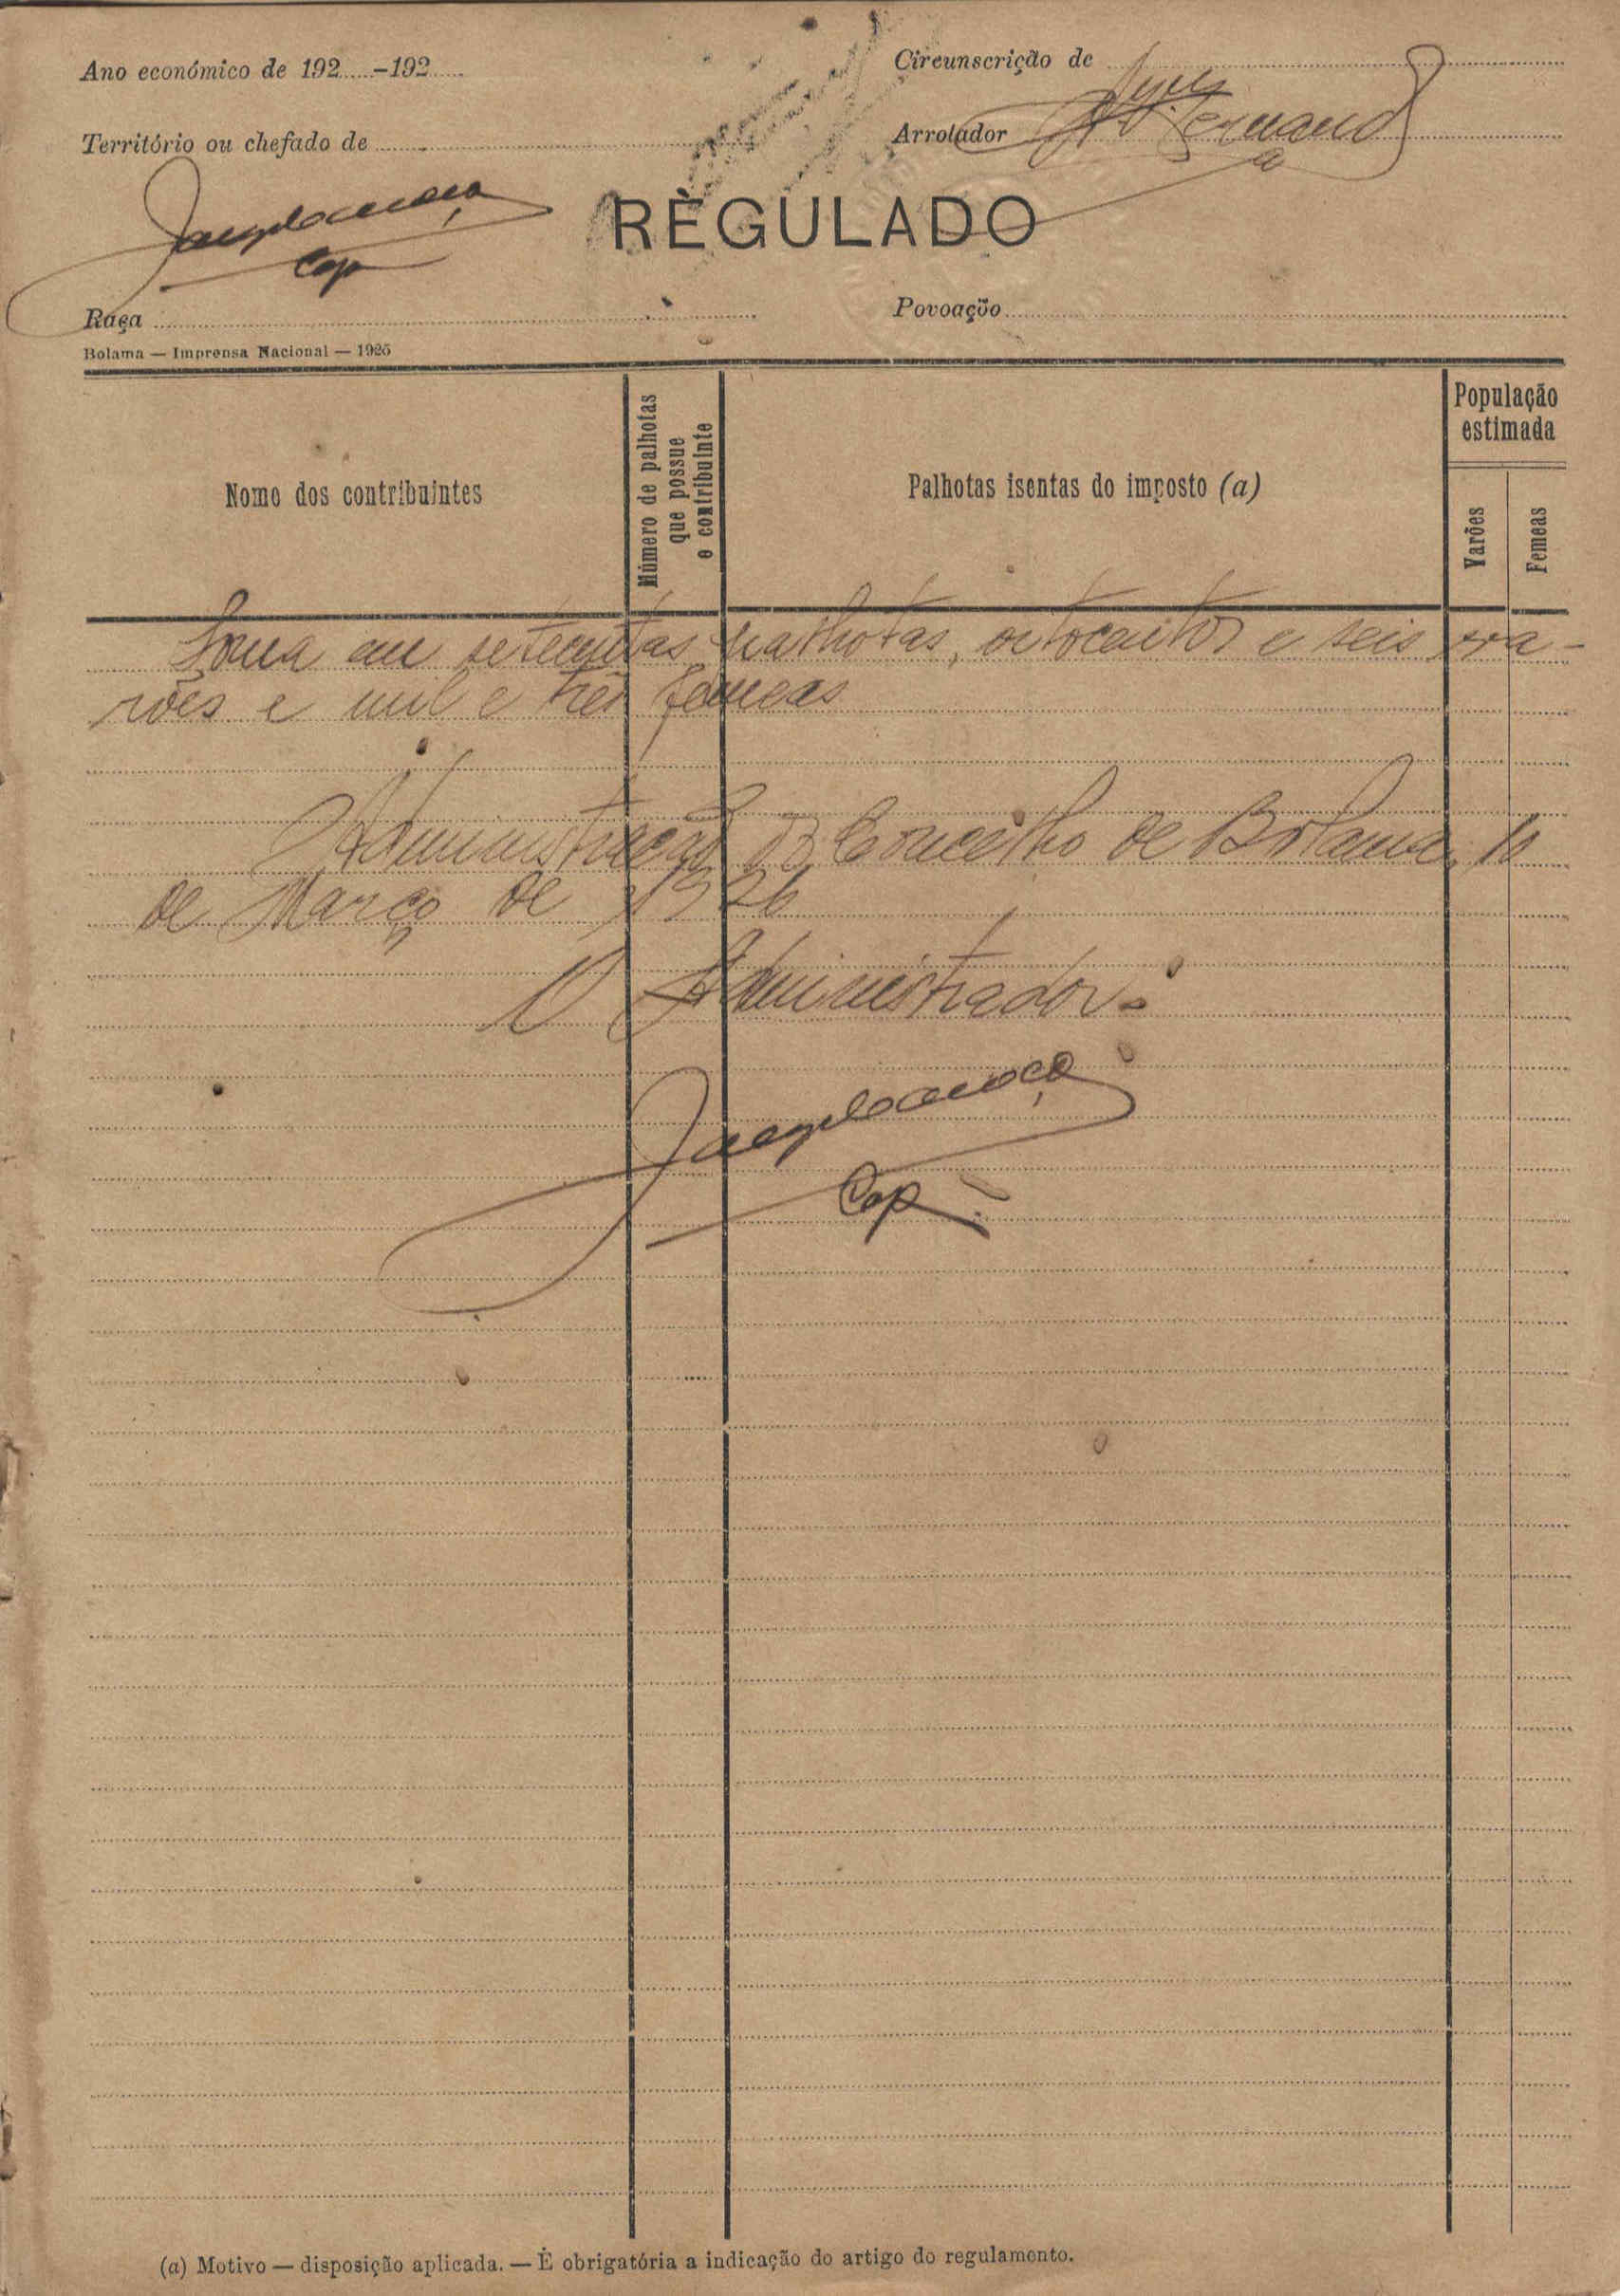 Ano económico de 192......-192......
Circunscrição de
Território ou chefado de
Arrolador
REGULADO
Cap
Raça
Povoação
Bolama — Imprensa Nacional — 1925
Nome dos contribuintes
Número de palhotas que possue o contribuinte
Palhotas isentas do imposto (a)
População estimada
Varões
Femeas
Soma em setecentas palhotas, oitocentos e seis va-
rões e mil e três femeas
Administração do Concelho de Bolama,
de Março de 1926
O Administrador
Cap
(a) Motivo — disposição aplicada. — É obrigatória a indicação do artigo do regulamento.